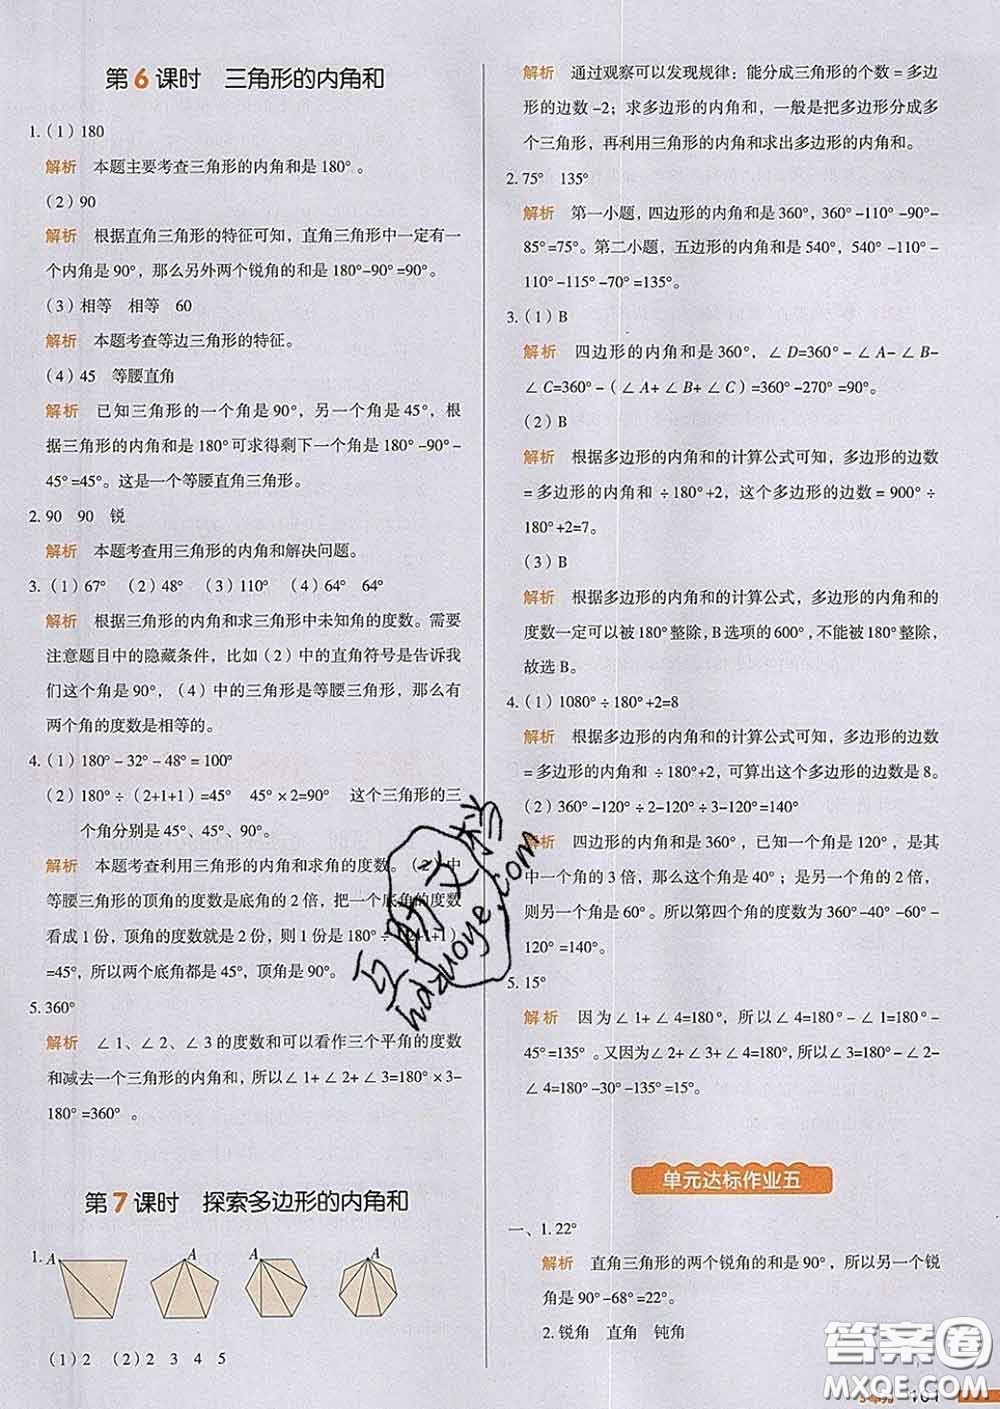 第6课时　三角形的内角和
1.（1）180
解析　本题主要考查三角形的内角和是180°。
（2）90
解析　根据直角三角形的特征可知，直角三角形中一定有一
个内角是90°，那么另外两个锐角的和是180°-90°=90°。
（3）相等　相等　60
解析　本题考查等边三角形的特征。
（4）45　等腰直角
解析　已知三角形的一个角是90°，另一个角是45°，根
据三角形的内角和是180°可求得剩下一个角是180°-90°-
45°=45°。这是一个等腰直角三角形。
2. 90　90　锐
解析　本题考查用三角形的内角和解决问题。
3.（1）67°　（2）48°　（3）110°　（4）64°　64°
解析　根据三角形的内角和求三角形中未知角的度数。需要
注意题目中的隐藏条件，比如（2）中的直角符号是告诉我
们这个角是90°，（4）中的三角形是等腰三角形，那么有
两个角的度数是相等的。
4.（1）180°-32°-48°=100°
（2）180°÷（2+1+1）=45°　45°×2=90°　这个三角形的三
个角分别是45°、45°、90°。
解析　本题考查利用三角形的内角和求角的度数。（2）中
等腰三角形的顶角的度数是底角的2倍，把一个底角的度数
看成1份，顶角的度数就是2份，则1份是180°÷（2+1+1）
=45°，所以两个底角都是45°，顶角是90°。
5. 360°
解析　∠1、∠2、∠3的度数和可以看作三个平角的度数
和减去一个三角形的内角和，所以∠1+∠2+∠3=180°×3-
180°=360°。
第7课时　探索多边形的内角和
1.
A　A　A　A
（1）2　（2）2　3　4　5
解析　通过观察可以发现规律：能分成三角形的个数=多边
形的边数-2；求多边形的内角和，一般是把多边形分成多
个三角形，再利用三角形的内角和求出多边形的内角和。
2. 75°　135°
解析　第一小题，四边形的内角和是360°，360°-110°-90°-
85°=75°。第二小题，五边形的内角和是540°，540°-110°-
110°-115°-70°=135°。
3.（1）B
解析　四边形的内角和是360°，∠D=360°-∠A-∠B-
∠C=360°-（∠A+∠B+∠C）=360°-270°=90°。
（2）B
解析　根据多边形的内角和的计算公式可知，多边形的边数
=多边形的内角和÷180°+2，这个多边形的边数=900°÷
180°+2=7。
（3）B
解析　根据多边形的内角和的计算公式，多边形的内角和的
度数一定可以被180°整除，B选项的600°，不能被180°整除，
故选B。
4.（1）1080°÷180°+2=8
解析　根据多边形的内角和的计算公式可知，多边形的边数
=多边形的内角和÷180°+2，可算出这个多边形的边数是8。
（2）360°-120°÷2-120°÷3-120°=140°
解析　四边形的内角和是360°，已知一个角是120°，是其
中一个角的3倍，那么这个角是40°；是另一个角的2倍，
则另一个角是60°。所以第四个角的度数为360°-40°-60°-
120°=140°。
5. 15°
解析　因为∠1+∠4=180°，所以∠4=180°-∠1=180°-
45°=135°。又因为∠2+∠3+∠4=180°，所以∠3=180°-∠2-
∠4=180°-30°-135°=15°。
单元达标作业五
一、1. 22°
解析　直角三角形的两个锐角的和是90°，所以另一个锐
角是90°-68°=22°。
2. 锐角　直角　钝角
答案圈
MXQE.COM